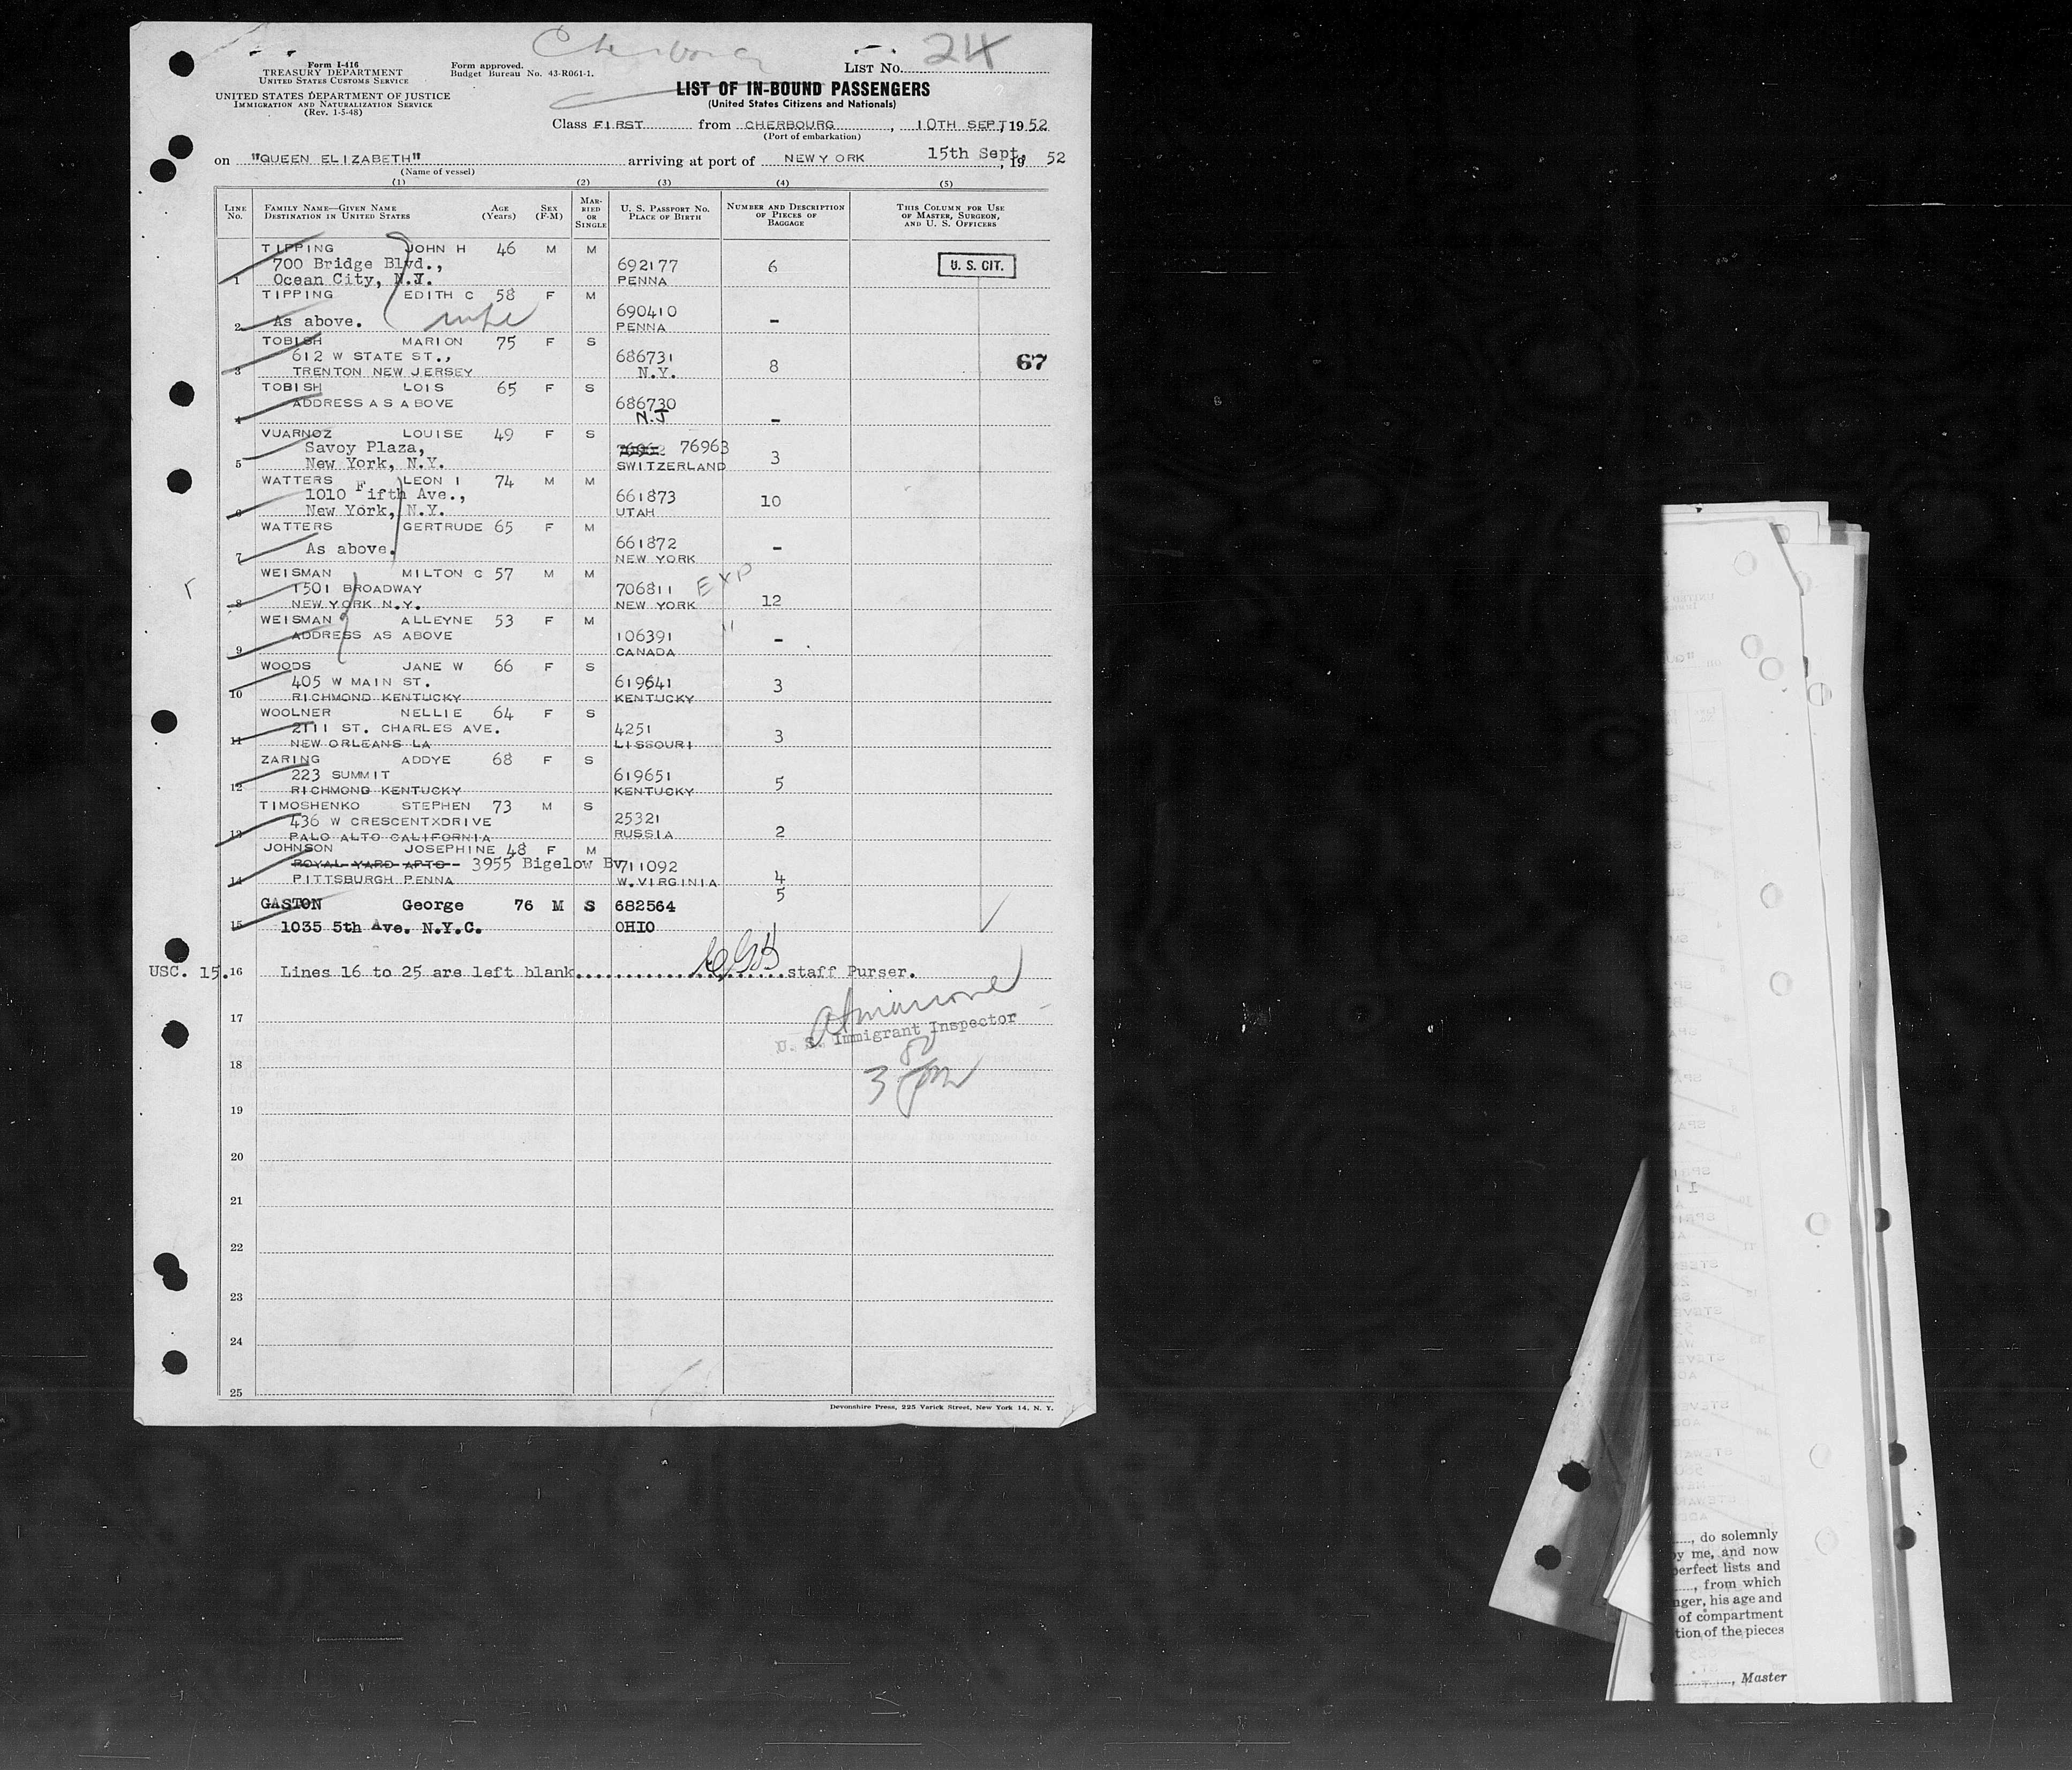 Cherbourg
24
Form I-416
TREASURY DEPARTMENT
UNITED STATES CUSTOMS SERVICE
UNITED STATES DEPARTMENT OF JUSTICE
IMMIGRATION AND NATURALIZATION SERVICE
(Rev. 1-5-48)
Form approved.
Budget Bureau No. 43-R061-1.
LIST No.
LIST OF IN-BOUND PASSENGERS
(United States Citizens and Nationals)
Class FIRST from CHERBOURG, 10TH SEPT, 1952
(Port of embarkation)
on "QUEEN ELIZABETH" arriving at port of NEWYORK 15th Sept, 19 52
(Name of vessel)
(1) (2) (3) (4) (5)
LINE No. FAMILY NAME—GIVEN NAME DESTINATION IN UNITED STATES AGE (Years) SEX (F-M) MARRIED OR SINGLE U. S. PASSPORT No. PLACE OF BIRTH NUMBER AND DESCRIPTION OF PIECES OF BAGGAGE THIS COLUMN FOR USE OF MASTER, SURGEON, AND U. S. OFFICERS
TIPPING JOHN H 46 M M
700 Bridge Blvd., 692177 6 U. S. CIT.
1 Ocean City, N.J. PENNA
TIPPING EDITH C 58 F M
wife 690410
2 As above. PENNA -
TOBISH MARION 75 F S
612 W STATE ST., 686731 67
3 TRENTON NEW JERSEY N.Y. 8
TOBISH LOIS 65 F S
ADDRESS AS ABOVE 686730
4 N.J -
VUARNOZ LOUISE 49 F S
Savoy Plaza, 76963
5 New York, N.Y. SWITZERLAND 3
WATTERS LEON I 74 M M
1010 Fifth Ave., 661873 10
6 New York, N.Y. UTAH
WATTERS GERTRUDE 65 F M
As above. 661872 -
7 NEW YORK
WEISMAN MILTON C 57 M M
1501 BROADWAY 706811 EXP
8 NEW YORK N.Y. NEW YORK 12
WEISMAN ALLEYNE 53 F M "
ADDRESS AS ABOVE 106391 -
9 CANADA
WOODS JANE W 66 F S
405 W MAIN ST. 619641 3
10 RICHMOND KENTUCKY KENTUCKY
WOOLNER NELLIE 64 F S
2111 ST. CHARLES AVE. 4251 3
11 NEW ORLEANS LA LISSOURI
ZARING ADDYE 68 F S
223 SUMMIT 619651 5
12 RICHMOND KENTUCKY KENTUCKY
TIMOSHENKO STEPHEN 73 M S
436 W CRESCENTXDRIVE 25321
13 PALO ALTO CALIFORNIA RUSSIA 2
JOHNSON JOSEPHINE 48 F M
ROYAL YARD APTS 3955 Bigelow Bv 711092
14 PITTSBURGH PENNA W.VIRGINIA 4
5
GASTON George 76 M S 682564
15 1035 5th Ave. N.Y.C. OHIO
USC. 15. 16 Lines 16 to 25 are left blank...................staff Purser.
17
U. S. Immigrant Inspector
18
3 pm
19
20
21
22
23
24
25
Devonshire Press, 225 Varick Street, New York 14, N. Y.
, do solemnly
by me, and now
perfect lists and
, from which
nger, his age and
of compartment
tion of the pieces
, Master